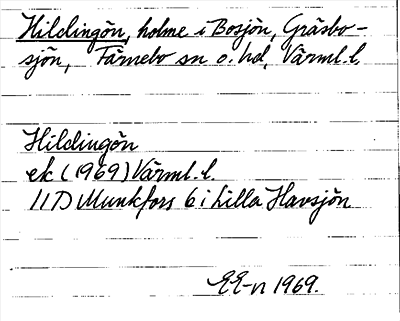 Hildingön, holme i Bosjön, Gräsbo-
sjön, Färnebo sn o. hd, Värml. l.
Hildingön
ek (1969) Värml. l.
11D Munkfors 6 i Lilla Havsjön
EE-n 1969.